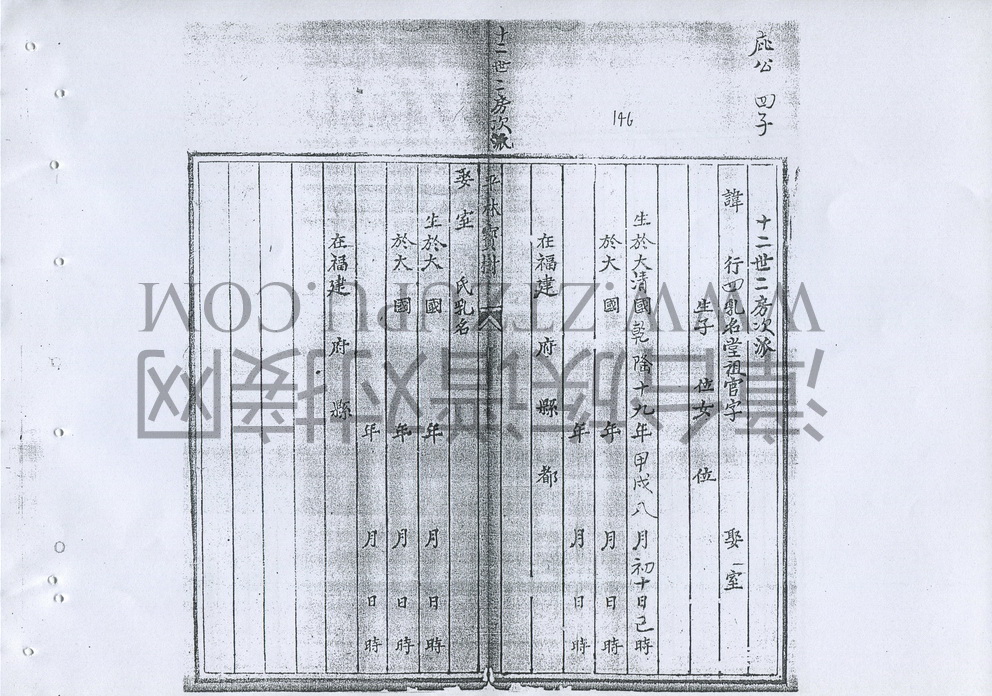 庇公 四子
146
十二世二房次派
諱 行四乳名堂祖官字 娶一室
生子 位女 位
生於大清國乾隆十九年甲戌八月初十日巳時
於大 國 年 月 日 時
年 月 日 時
在福建 府 縣 都
十二世二房次派
平林寶樹
娶 室 氏乳名
生於大 國 年 月 日 時
於大 國 年 月 日 時
年 月 日 時
在福建 府 縣
WWW.ZTZUPU.COM
漳台族谱对接网